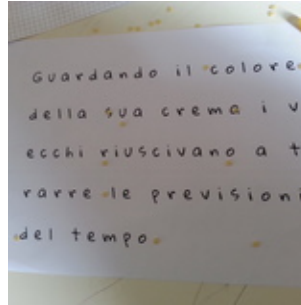 Guardando il colore
della sua crema i v
ecchi riuscivano a t
rarre le previsioni
del tempo.